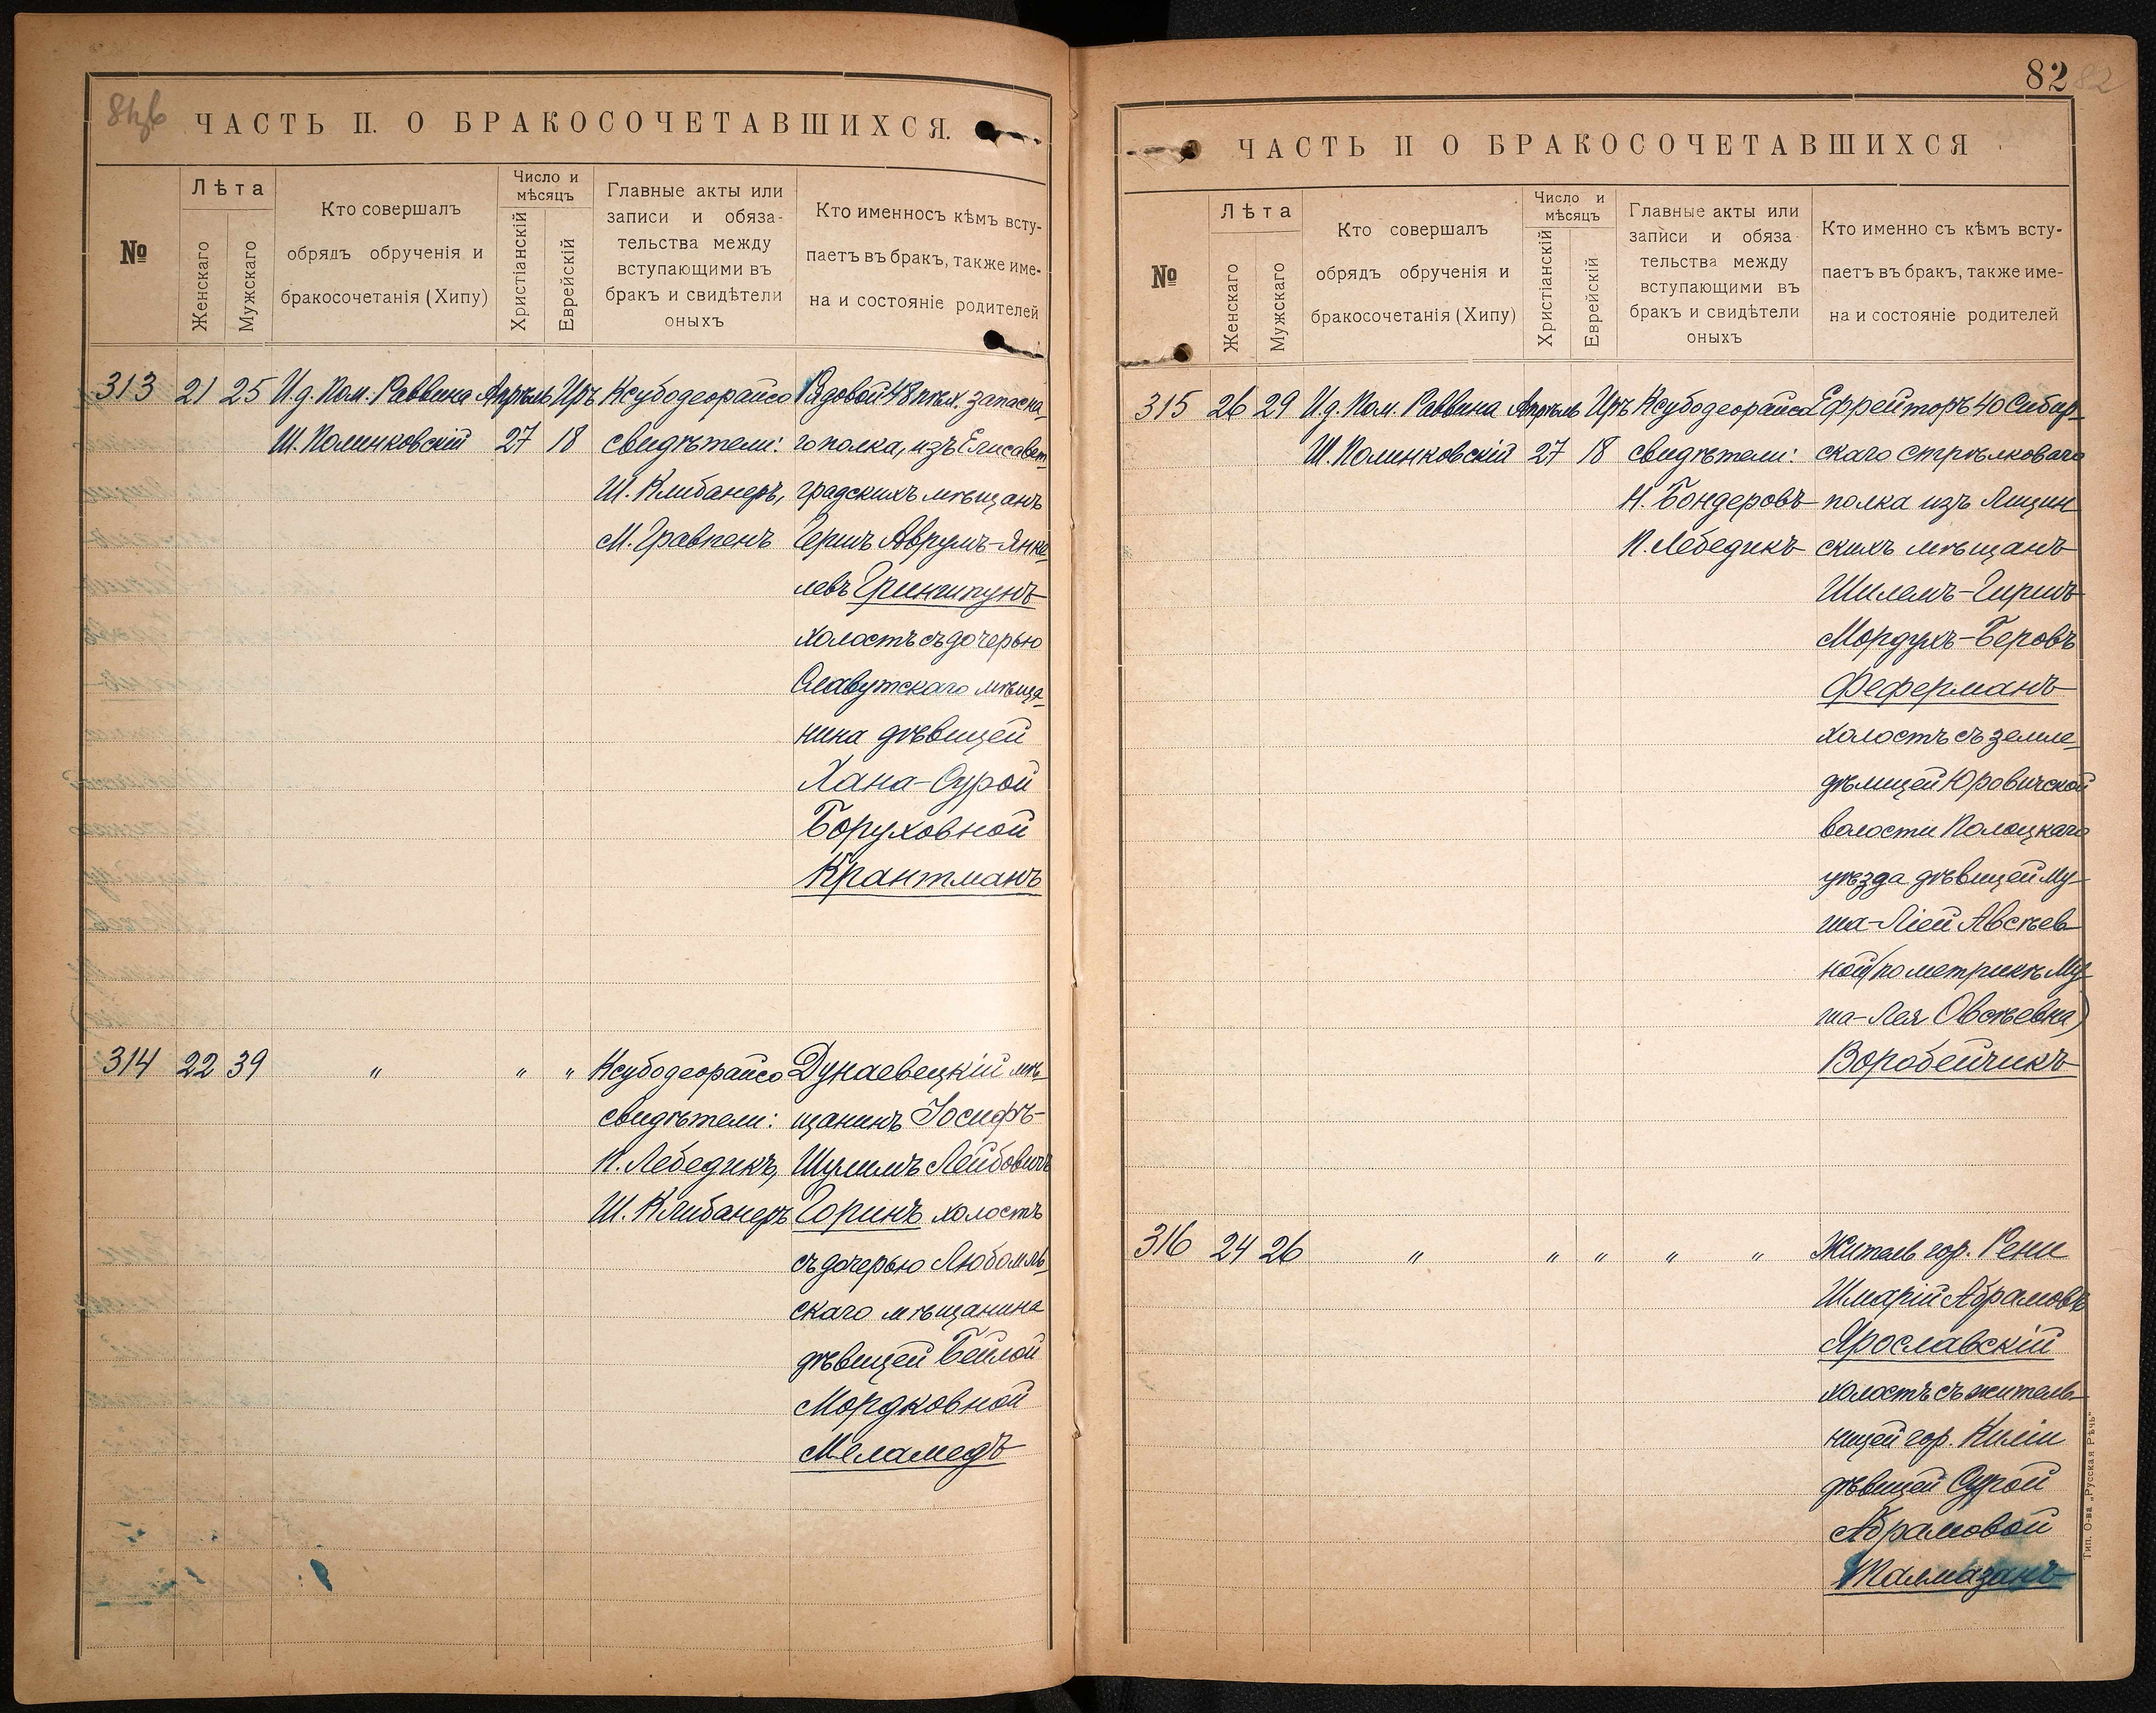 ЧАСТЬ II. О БРАКОСОЧЕТАВШИХСЯ.
№
Лѣта
Женскаго
Мужскаго
Кто совершалъ
обрядъ обрученія и
бракосочетанія (Хипу)
Число и
мѣсяцъ
Христіанскій
Еврейскій
Главные акты или
записи и обяза-
тельства между
вступающими въ
бракъ и свидѣтели
оныхъ
Кто именносъ кѣмъ всту-
паетъ въ бракъ, также име-
на и состояніе родителей
313 21 25 И.д. Пом. Раввина Апрѣль Иръ Ксубодеорайсо Рядовой 48 пѣх. запасна-
Ш. Полинковскій 27 18 свидѣтели: го полка, изъ Елисавет-
Ш. Клибанеръ, градскихъ мѣщанъ
М. Гравпенъ Гершъ Аврумъ-Янке-
левъ Гриншпунъ
холостъ съ дочерью
Славутскаго мѣща-
нина дѣвицей
Хана-Сурой
Боруховной
Крантманъ
314 22 39 " " " Ксубодеорайсо Дунаевецкій мѣ-
свидѣтели: щанинъ Іосифъ-
П. Лебедикъ, Шулимъ Лейбовичъ
Ш. Клибанеръ Горинъ холостъ
съ дочерью Любомль-
скаго мѣщанина
дѣвицей Бейлой
Мордковной
Меламедъ
82
82
ЧАСТЬ II О БРАКОСОЧЕТАВШИХСЯ
№
Лѣта
Женскаго
Мужскаго
Кто совершалъ
обрядъ обрученія и
бракосочетанія (Хипу)
Число и
мѣсяцъ
Христіанскій
Еврейскій
Главные акты или
записи и обяза
тельства между
вступающими въ
бракъ и свидѣтели
оныхъ
Кто именно съ кѣмъ всту-
паетъ въ бракъ, также име-
на и состояніе родителей
315 26 29 И.д. Пом. Раввина Апрѣль Иръ Ксубодеорайсо Ефрейторъ 40 Сибир-
Ш. Полинковскій 27 18 свидѣтели: скаго стрѣлковаго
Н. Бондеровъ полка изъ Люцин-
П. Лебедикъ скихъ мѣщанъ
Шилемъ-Гиршъ
Мордухъ-Беровъ
Феферманъ
холостъ съ земле-
дѣлицей Юровичской
волости Полоцкаго
уѣзда дѣвицей Му-
ша-Ліей Авсѣев-
ной (по метрикѣ Му-
ша-Лея Овсѣевна)
Воробейчикъ
316 24 26 " " " " " Житель гор. Рени
Шмарій Абрамовъ
Ярославскій
холостъ съ житель-
ницей гор. Киліи
дѣвицей Сурой
Абрамовой
Талмазанъ
Тип. О-ва „Русская Рѣчь"